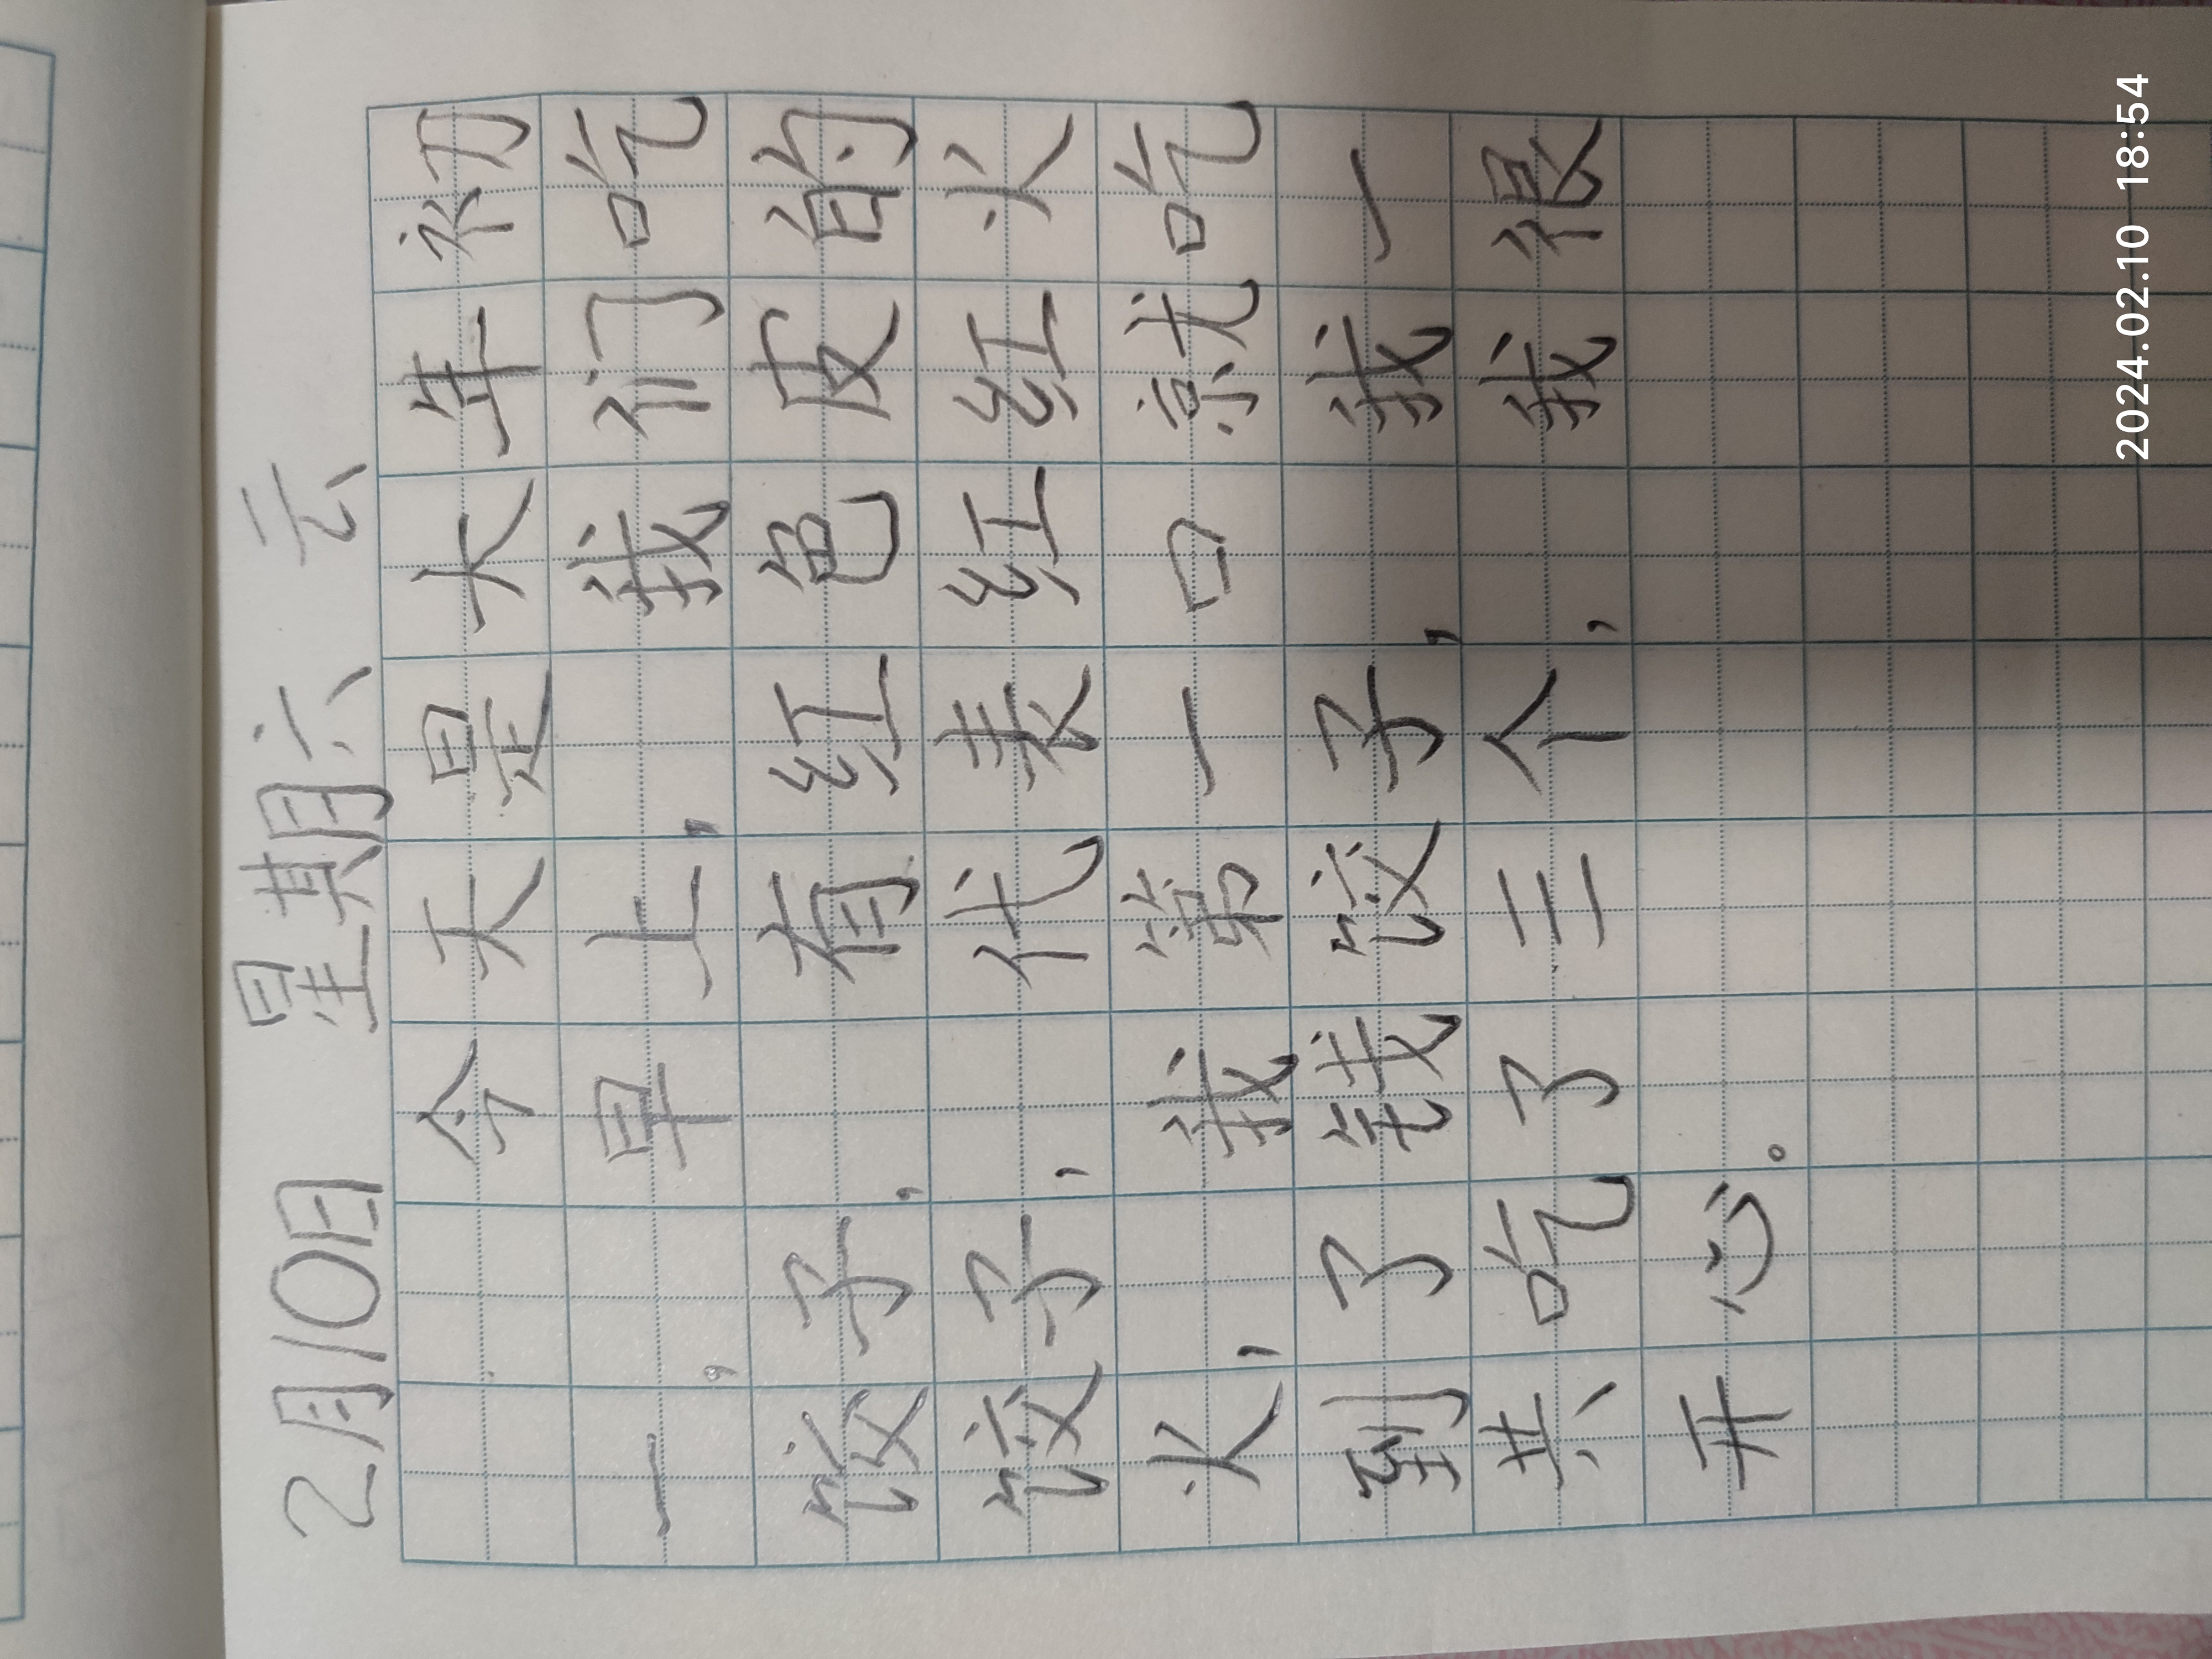 2月10日 星期六 云
今天是大年初
一,早上,我们吃
饺子,有红色皮的
饺子,代表红红火
火,我第一口就吃
到了钱饺子,我一
共吃了三个,我很
开心。
2024.02.10 18:54